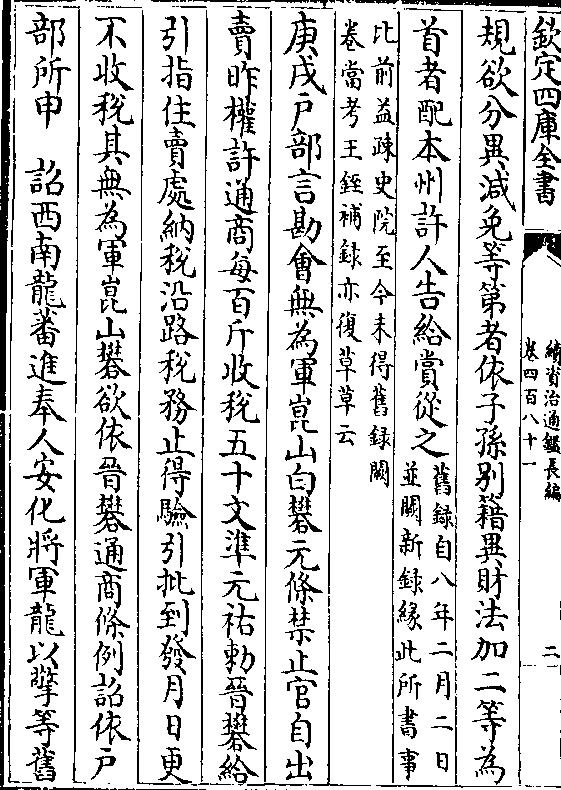 欽定四庫全書
續資治通鑑長編
卷四百八十一
二
規欲分異減免等第者依子孫别籍異財法加二等為
首者配本州許人告給賞從之舊録自八年二月二日
並闕新録緣此所書事
比前益疎史院至今未得舊録闕
卷當考王銍補録亦復草草云
庚戌户部言勘會無為軍崑山白礬元條禁止官自出
賣昨權許通商每百斤收稅五十文準元祐勅晉礬給
引指住賣處納稅沿路稅務止得驗引批到發月日更
不收稅其無為軍崑山礬欲依晉礬通商條例詔依户
部所申 詔西南龍蕃進奉人安化將軍龍以㧞等舊